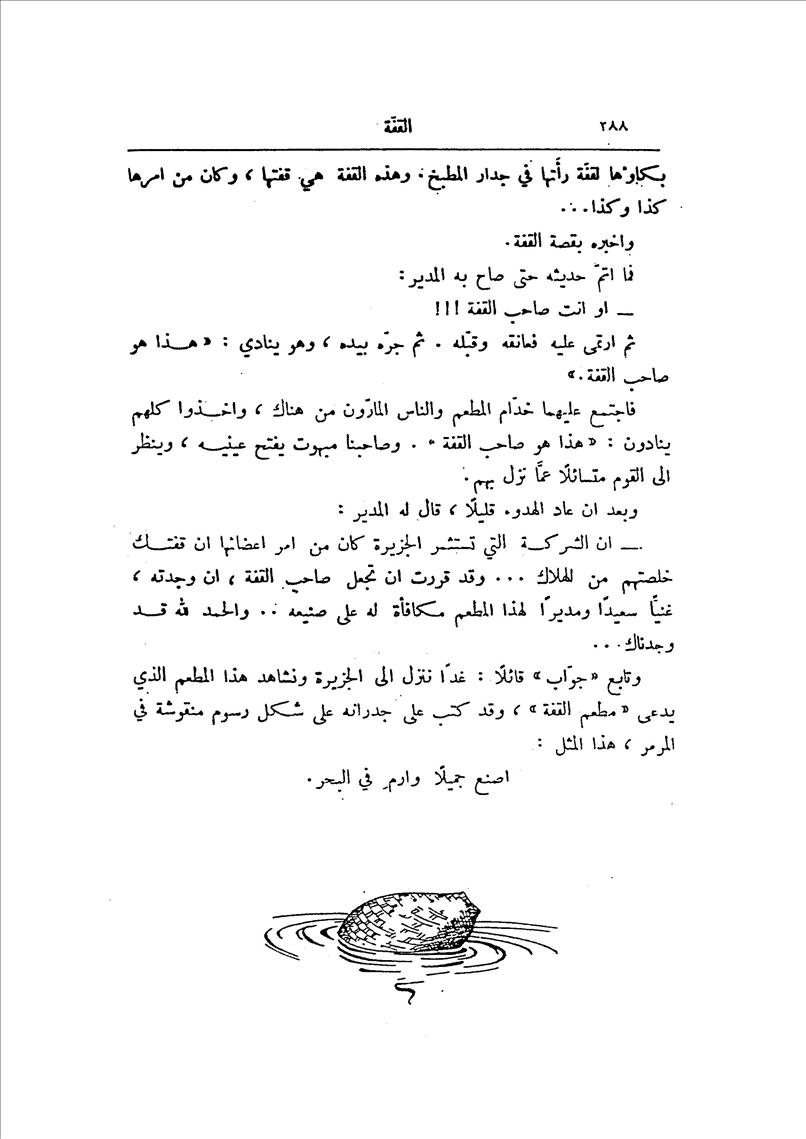 ٢٨٨
القفّة
بكاؤها لقفّة رأَتها في جدار المطبخ. وهذه القفة هي قفتها ، وكان من امرها
كذا وكذا...
واخبره بقصة القفة.
فما اتمّ حديثه حتى صاح به المدير :
— او انت صاحب القفة !!!
ثم ارتمى عليه فعانقه وقبّله . ثم جرّه بيده ، وهو ينادي : «هـذا هو
صاحب القفة.»
فاجتمع عليهما خدّام المطعم والناس المارّون من هناك ، واخـذوا كلهم
ينادون : «هذا هو صاحب القفة» . وصاحبنا مبهوت يفتح عينيـه ، وينظر
الى القوم متسائلًا عمَّا نزل بهم.
وبعد ان عاد الهدوء قليلًا ، قال له المدير :
— ان الشركـة التي تستثمر الجزيرة كان من امر اعضائها ان قفتـك
خلصتهم من الهلاك ... وقد قررت ان تجعل صاحب القفة ، ان وجدته ،
غنيًّا سعيدًا ومديرًا لهذا المطعم مكافأة له على صنيعه .. والحمد لله قـد
وجدناك...
وتابع «جوّاب» قائلًا : غدًا ننزل الى الجزيرة ونشاهد هذا المطعم الذي
يدعى «مطعم القفة» ، وقد كتب على جدرانه على شكل رسوم منقوشة في
المرمر ، هذا المثل :
اصنع جميلًا وارمِ في البحر.